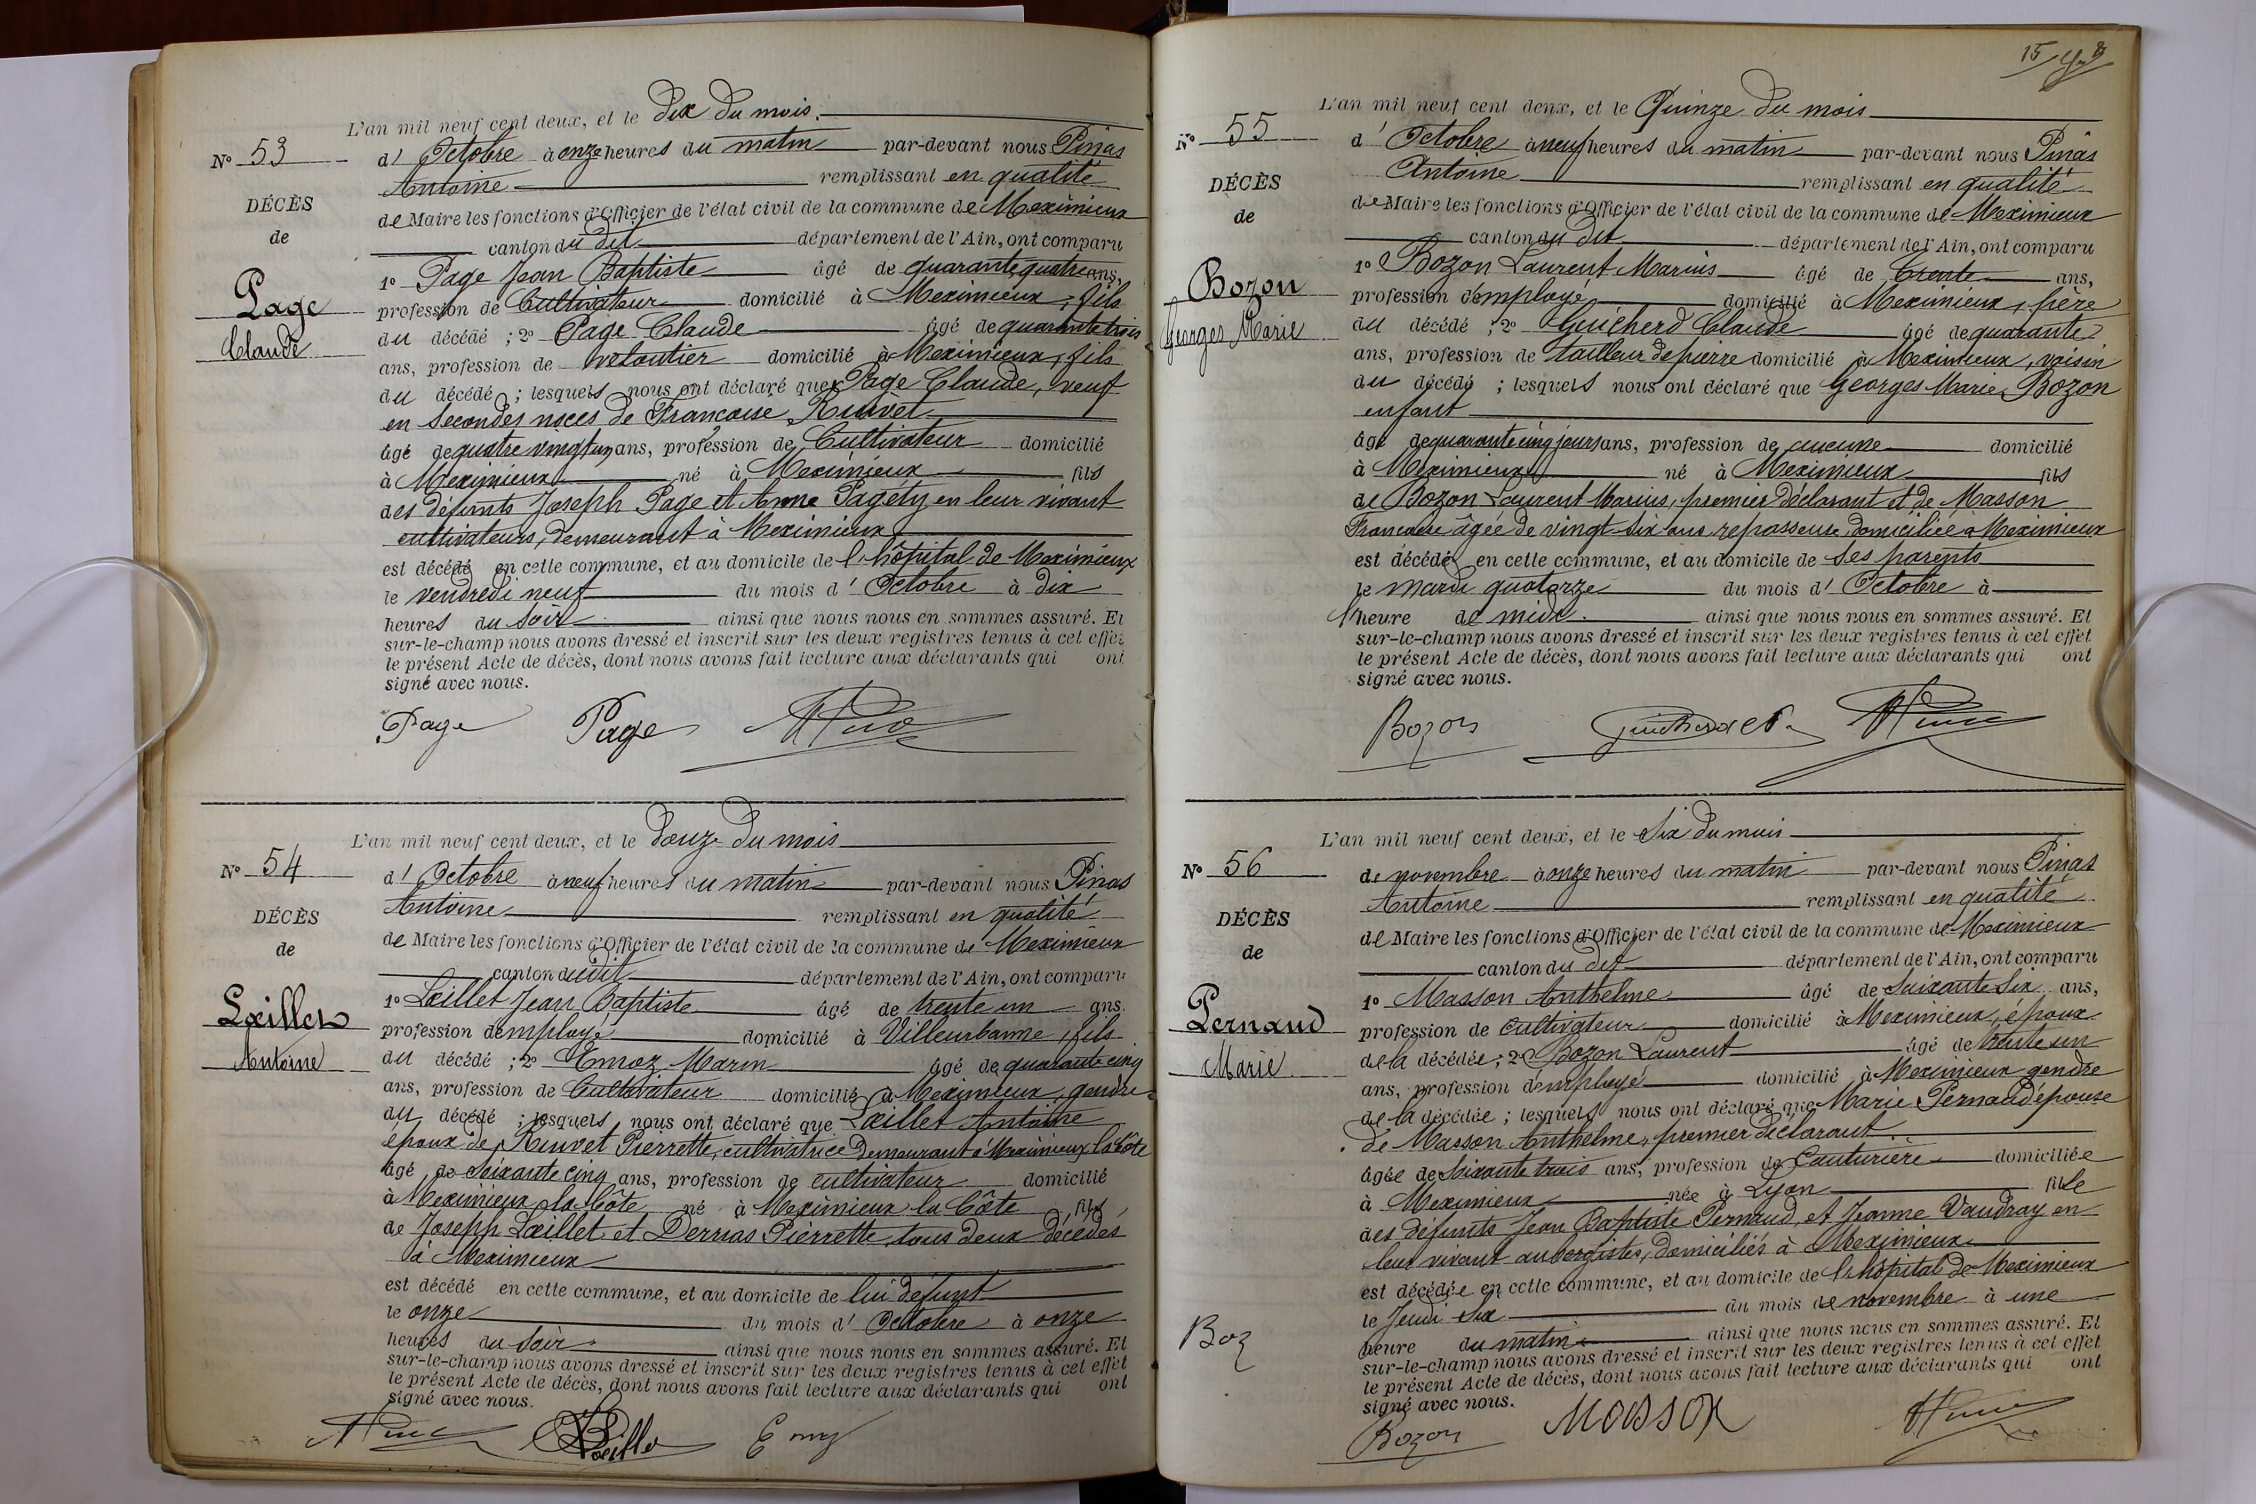 L'an mil neuf cent deux, et le Dix du mois
N° 53
d'Octobre à onze heures du matin par-devant nous Pinas
Antoine remplissant en qualité
DÉCÈS
de Maire les fonctions d'Officier de l'état civil de la commune de Meximieux
de
canton du dit département de l'Ain, ont comparu
1° Page Jean Baptiste âgé de quarante quatre ans,
Page
profession de Cultivateur domicilié à Meximieux, fils
Claude
du décédé ; 2° Page Claude âgé de quarante trois
ans, profession de domicilié à Meximieux, fils
du décédé ; lesquels nous ont déclaré que Page Claude, veuf
en secondes noces de Françoise Ruivet
âgé de quatre vingt un ans, profession de Cultivateur domicilié
à Meximieux né à Meximieux fils
des défunts Joseph Page et Anne Pagéty en leur vivant
cultivateurs, demeurant à Meximieux
est décédé en cette commune, et au domicile de l'hôpital de Meximieux
le vendredi neuf du mois d'Octobre à dix
heures du soir ainsi que nous nous en sommes assuré. Et
sur-le-champ nous avons dressé et inscrit sur les deux registres tenus à cet effet
le présent Acte de décès, dont nous avons fait lecture aux déclarants qui ont
signé avec nous.
Page Page
L'an mil neuf cent deux, et le Douze du mois
N° 54
d'Octobre à neuf heures du matin par-devant nous Pinas
Antoine remplissant en qualité
DÉCÈS
de Maire les fonctions d'Officier de l'état civil de la commune de Meximieux
de
canton dudit département de l'Ain, ont comparu
1° Lœillet Jean Baptiste âgé de trente un ans.
Lœillet
profession d'employé domicilié à Villeurbanne, fils
Antoine
du décédé ; 2° Emoz Marin âgé de quarante cinq
ans, profession de Cultivateur domicilié à Meximieux, gendre
du décédé ; lesquels nous ont déclaré que Lœillet Antoine
époux de Ruivet Pierrette, cultivatrice demeurant à Meximieux la Côte
âgé de soixante cinq ans, profession de cultivateur domicilié
à Meximieux la Côte né à Meximieux la Côte fils
de Joseph Lœillet et Dernas Pierrette tous deux décédés
à Meximieux
est décédé en cette commune, et au domicile de lui défunt
le onze du mois d'Octobre à onze
heures du soir ainsi que nous nous en sommes assuré. Et
sur-le-champ nous avons dressé et inscrit sur les deux registres tenus à cet effet
le présent Acte de décès, dont nous avons fait lecture aux déclarants qui ont
signé avec nous.
Lœillet
15
L'an mil neuf cent deux, et le Quinze du mois
N° 55
d'Octobre à neuf heures du matin par-devant nous Pinas
Antoine remplissant en qualité
DÉCÈS
de Maire les fonctions d'Officier de l'état civil de la commune de Meximieux
de
canton du dit département de l'Ain, ont comparu
1° Bozon Laurent Marius âgé de trente ans,
Bozon
profession d'employé domicilié à Meximieux, père
Georges Marie
du décédé ; 2° Guicherd Claude âgé de quarante
ans, profession de tailleur de pierre domicilié à Meximieux, voisin
du décédé ; lesquels nous ont déclaré que Georges Marie Bozon
enfant
âgé de quarante cinq jours ans, profession de aucune domicilié
à Meximieux né à Meximieux fils
de Bozon Laurent Marius, premier déclarant et de Masson
Françoise âgée de vingt six ans repasseuse, domiciliée à Meximieux
est décédé en cette commune, et au domicile de ses parents
le mardi quatorze du mois d'Octobre à
l'heure de midi ainsi que nous nous en sommes assuré. Et
sur-le-champ nous avons dressé et inscrit sur les deux registres tenus à cet effet
le présent Acte de décès, dont nous avons fait lecture aux déclarants qui ont
signé avec nous.
Bozon
L'an mil neuf cent deux, et le Six du mois
N° 56
de novembre à onze heures du matin par-devant nous Pinas
Antoine remplissant en qualité
DÉCÈS
de Maire les fonctions d'Officier de l'état civil de la commune de Meximieux
de
canton du dit département de l'Ain, ont comparu
1° Masson Anthelme âgé de soixante six ans,
Pernaud
profession de cultivateur domicilié à Meximieux, époux
Marie
de la décédée ; 2° Bozon Laurent âgé de trente un
ans, profession d'employé domicilié à Meximieux gendre
de la décédée ; lesquels nous ont déclaré que Marie Pernaud épouse
de Masson Anthelme, premier déclarant
âgée de soixante trois ans, profession de Couturière domiciliée
à Meximieux née à Lyon fille
des défunts Jean Baptiste Pernaud et Jeanne Vaudray en
leur vivant aubergistes, domiciliés à Meximieux
est décédée en cette commune, et au domicile de l'hôpital de Meximieux
le Jeudi six du mois de novembre à une
heure du matin ainsi que nous nous en sommes assuré. Et
Boz
sur-le-champ nous avons dressé et inscrit sur les deux registres tenus à cet effet
le présent Acte de décès, dont nous avons fait lecture aux déclarants qui ont
signé avec nous.
Bozon Masson